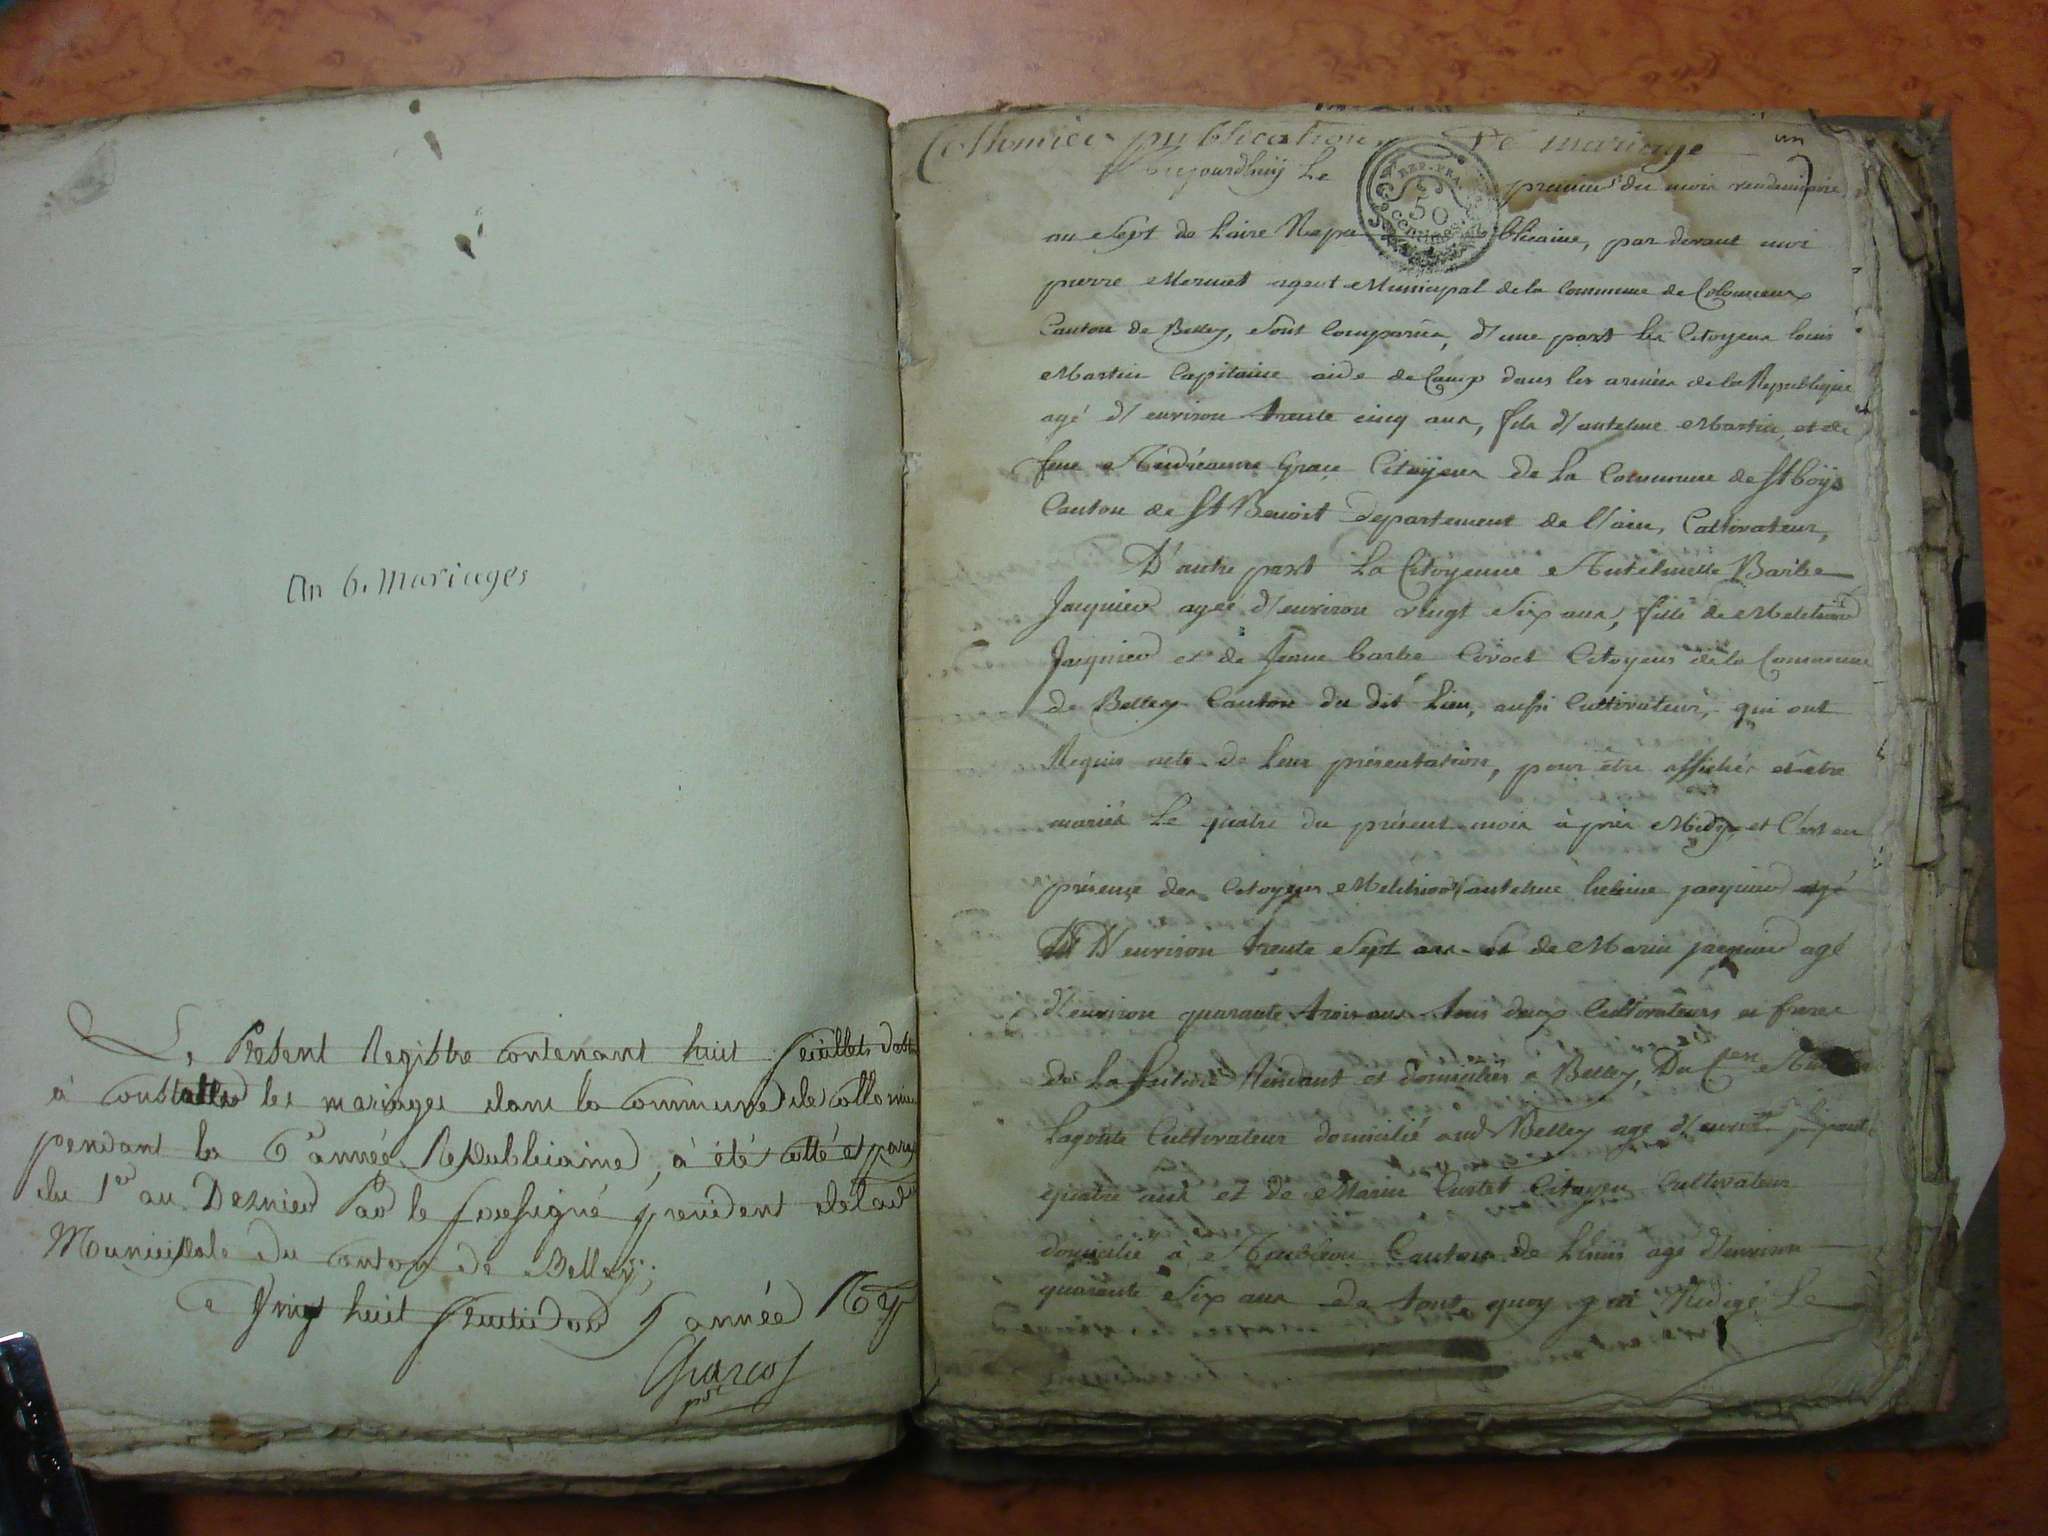 An 6. Mariages
Le Present Registre contenant huit feuillets
à constatter les mariages dans la commune de collomieu
pendant la 6e année Republicaine, à été cotté et para
du 1er au Dernier Par le soussigné president de l'ad
Municipale du canton de Belley;
Ce huit fructidor 5 année
Charcot
pdt
Collomieu publication De mariage un
Aujourdhuÿ Le premier du mois vendemiaire
REP. FRA.
50
CENTIMES
au Sept de Laire Republicaine, par devant moi
pierre Mermet agent Municipal de la Commune de Colomieux
Canton de Belley, sont Comparûs, d'une part Les Citoyens louis
Martin Capitaine aide de Camp dans les armées de la Republique
agé d'environ trente cinq ans, fils d'antelme Martin, et de
feue Andréanne Grace Citoÿens de La Commune de St boÿs
Canton de St Benoit Departement de L'ain, Cultivateur,
D'autre part La Citoyenne Antelmette Barbe
Jacquier agée d'environ vingt Six ans, fille de Melchior
Jacquier et de Jeanne barbe Citoyens de la Commune
de Belley Canton du dit Lieu, aussi Cultivateur, qui ont
Requis acte de Leur présentation, pour être affichés et être
mariés Le quatre du présent mois à près Midy, et C'est en
présence des Citoyens Melchior antelme jacquier agé
D'environ trente Sept ans et de Marin jacquier agé
d'environ quarante trois ans tous deux Cultivateurs et freres
de La future Residant et domiciliés a Belley, Du Cen
Lagoute Cultivateur domicilié aud Belley agé d'environ
quatre ans et de Marin Citoyen Cultivateur
domicilié à Canton de agé d'environ
quarante Six ans de tout quoy j'ai Redigé Le